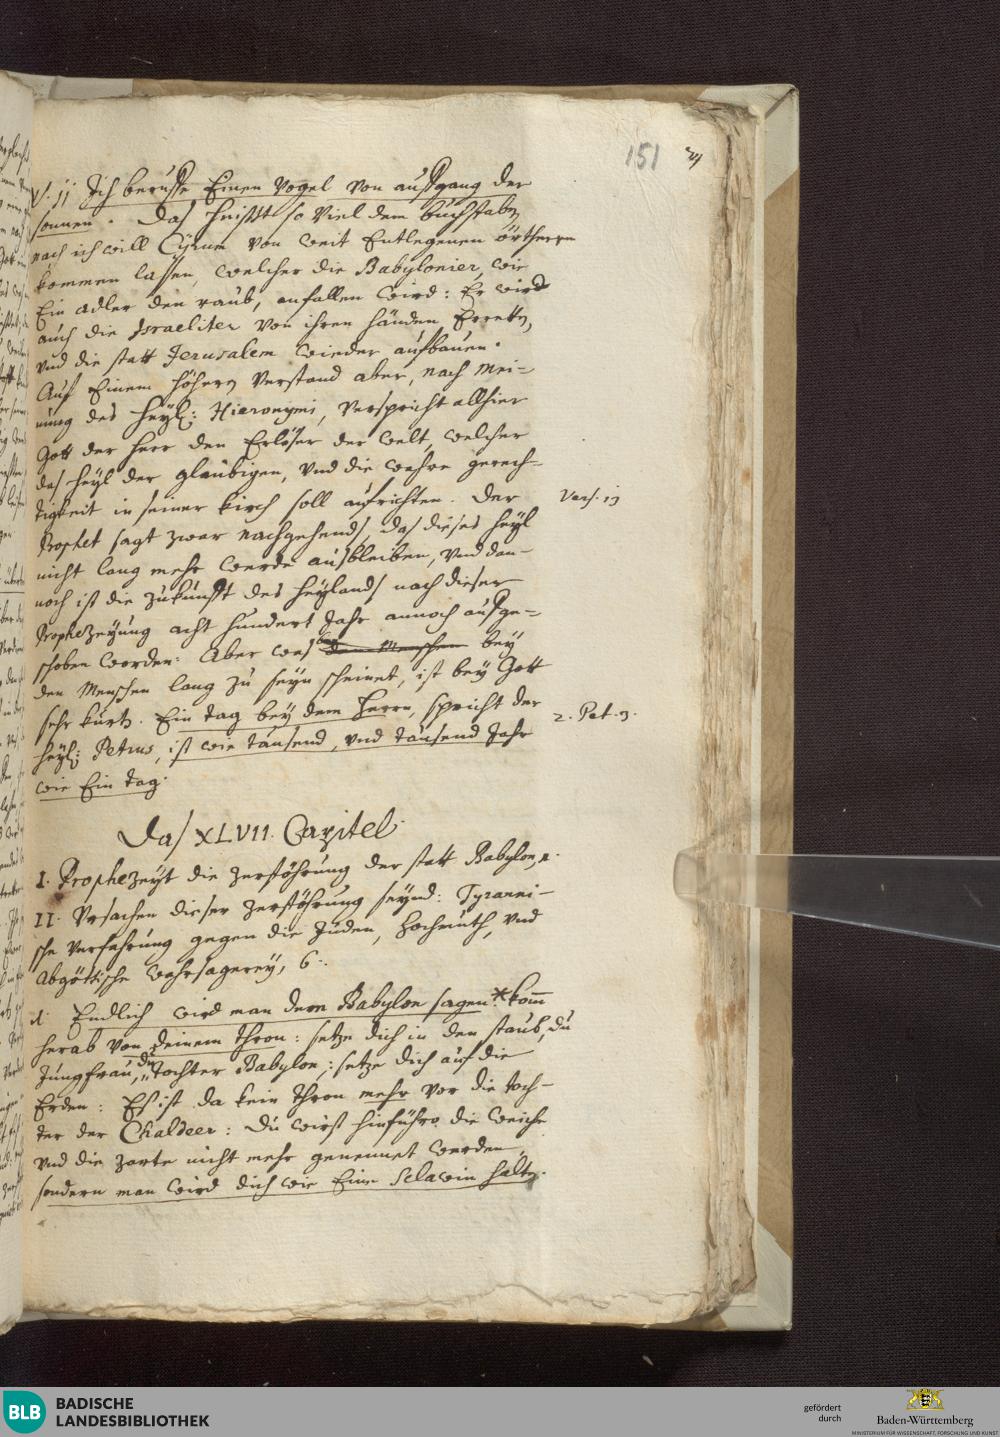 151
V. 11 Ich beruffe Einen Vogel von auffgang der
sonnen. Das heisst so viel dem buchstaben
nach ich will Cyrum von weit Entlegenen örthern
kommen lassen, welcher die Babylonier, wie
Ein adler den raub, anfallen wird: Er wird
auch die Israeliter von ihren händen Erretten,
vnd die statt Jerusalem wieder aufbauen.
Auf Einem höhern verstand aber, nach Mei-
nung des heyl: Hieronymi, verspricht allhier
Gott der herr den Erlöser der welt, welcher
das heyl der glaubigen, vnd die wahre gerech-
tigkeit in seiner kirch soll aufrichten. Der
Vers. 13
Prophet sagt zwar nachgehends, das dieses heyl
nicht lang mehr werde ausbleiben, vnd dan-
noch ist die zukunfft des heylands nach dieser
Prophezeyung acht hundert Jahr annoch aufge-
schoben worden: Aber was bey
den Menschen lang zu seyn scheinet, ist bey Gott
sehr kurtz. Ein tag bey dem Herrn, spricht der
2. Pet. 3.
heyl: Petrus, ist wie tausend, vnd tausend Jahr
wie Ein tag.
Das XLVII. Capitel.
I. Prophezeyt die zerstöhrung der statt Babylon, 1.
II. Vrsachen dieser zerstöhrung seynd: Tyranni-
sche verfahrung gegen die Juden, hochmuth, vnd
abgöttische wahrsagerey, 6.
Endlich wird man dem Babylon sagen: * komm
herab von deinem thron: setze dich in den staub, du
Jungfrau, du tochter Babylon,: setze dich auf die
Erden: Es ist da kein thron mehr vor die toch-
ter der Chaldeer: Du wirst hinführo die weiche
vnd die zarte nicht mehr genennet werden,
sondern man wird dich wie Eine sclavin halten.
BLB BADISCHE
LANDESBIBLIOTHEK
gefördert
durch
Baden-Württemberg
MINISTERIUM FÜR WISSENSCHAFT, FORSCHUNG UND KUNST